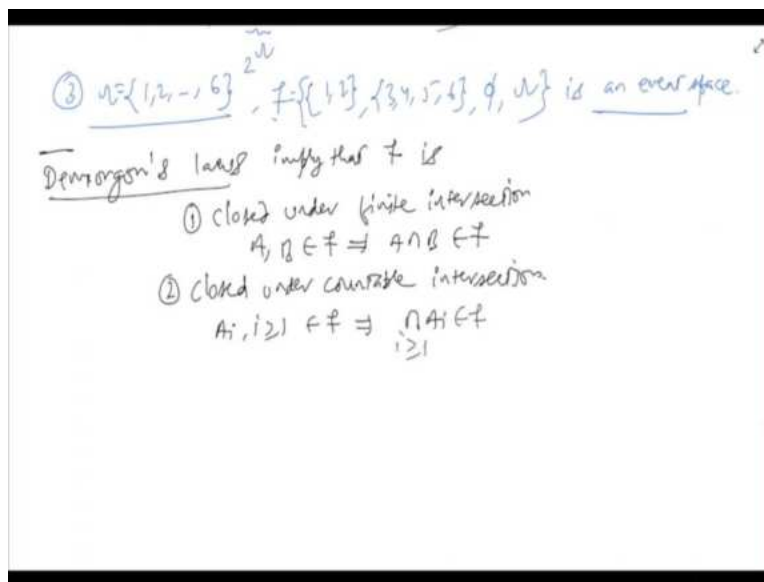 2^Ω
③ Ω={1,2,-,6}, F={{1,2},{3,4,5,6}, ϕ, Ω} is an event space.
Demorgon's laws imply that F is
① closed under finite intersection
A, B ∈ F ⇒ A∩B ∈ F
② closed under countable intersection.
Ai, i≥1 ∈ F ⇒ ∩Ai ∈ F
i≥1